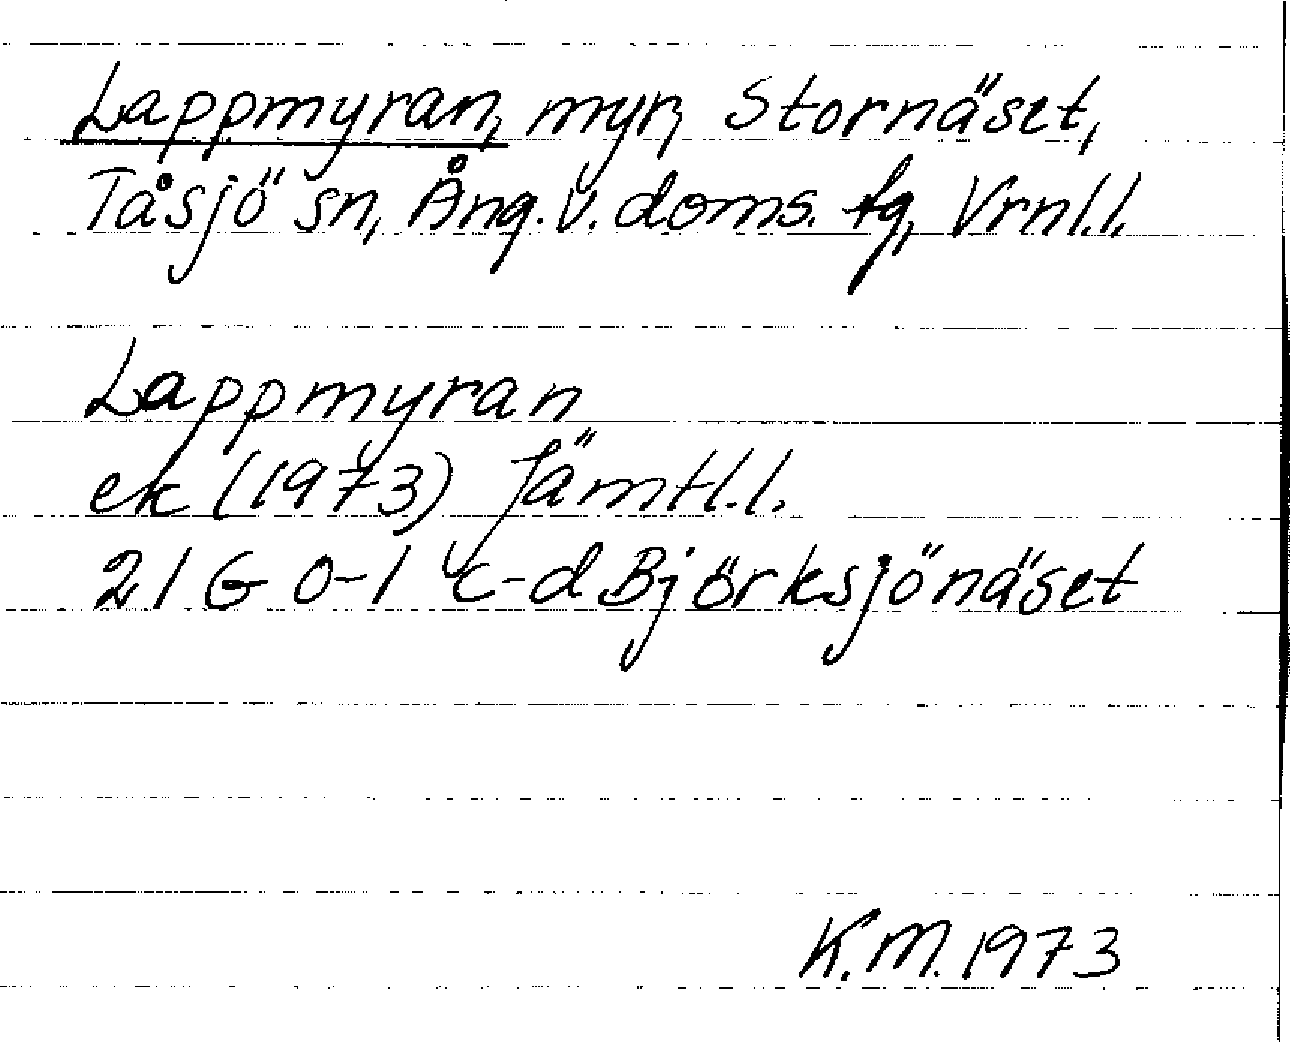 Lappmyran, myr, Stornäset,
Tåsjö sn, Ång. v. doms. tg, Vrnl.l.
Lappmyran
ek (1973) Jämtl.l.
21 G 0-1 c-d Björksjönäset
K.M. 1973